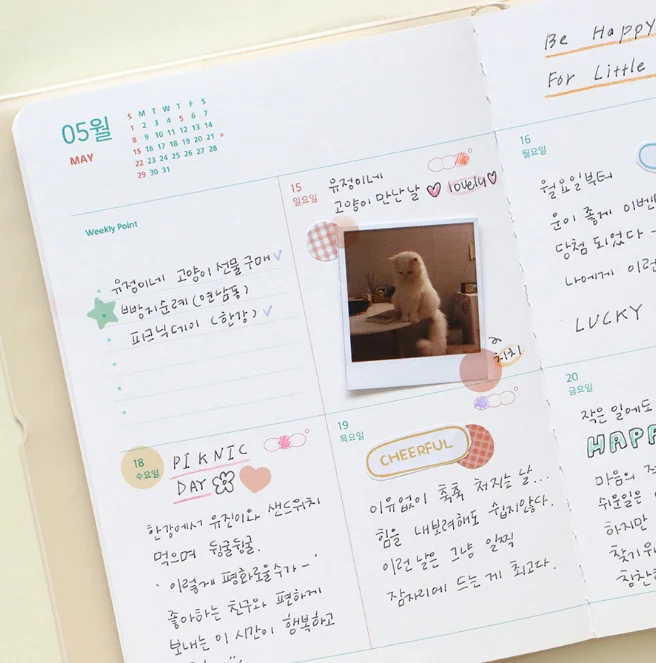 05월
MAY
S M T W T F S
1 2 3 4 5 6 7
8 9 10 11 12 13 14
15 16 17 18 19 20 21
22 23 24 25 26 27 28
29 30 31
Weekly Point
유정이네 고양이 선물 구매
빵지순례 (연남동)
피크닉데이 (한강)
15
일요일
유정이네
고양이 만난 날 lovely
치치
16
월요일
월요일부터
운이 좋게 이벤
당첨 되었다
나에게 이런
LUCKY
Be Happy
For Little
18
수요일
PIKNIC
DAY
한강에서 유진이와 샌드위치
먹으며 뒹굴뒹굴.
' 이렇게 평화로울수가 ~ '
좋아하는 친구와 편하게
보내는 이 시간이 행복하고
19
목요일
CHEERFUL
이유없이 축축 처지는 날...
힘을 내보려해도 쉽지않다.
이런 날은 그냥 일찍
잠자리에 드는 게 최고다.
20
금요일
작은 일에도
HAPP
마음의
쉬운일은
하지만
찾기위
칭찬